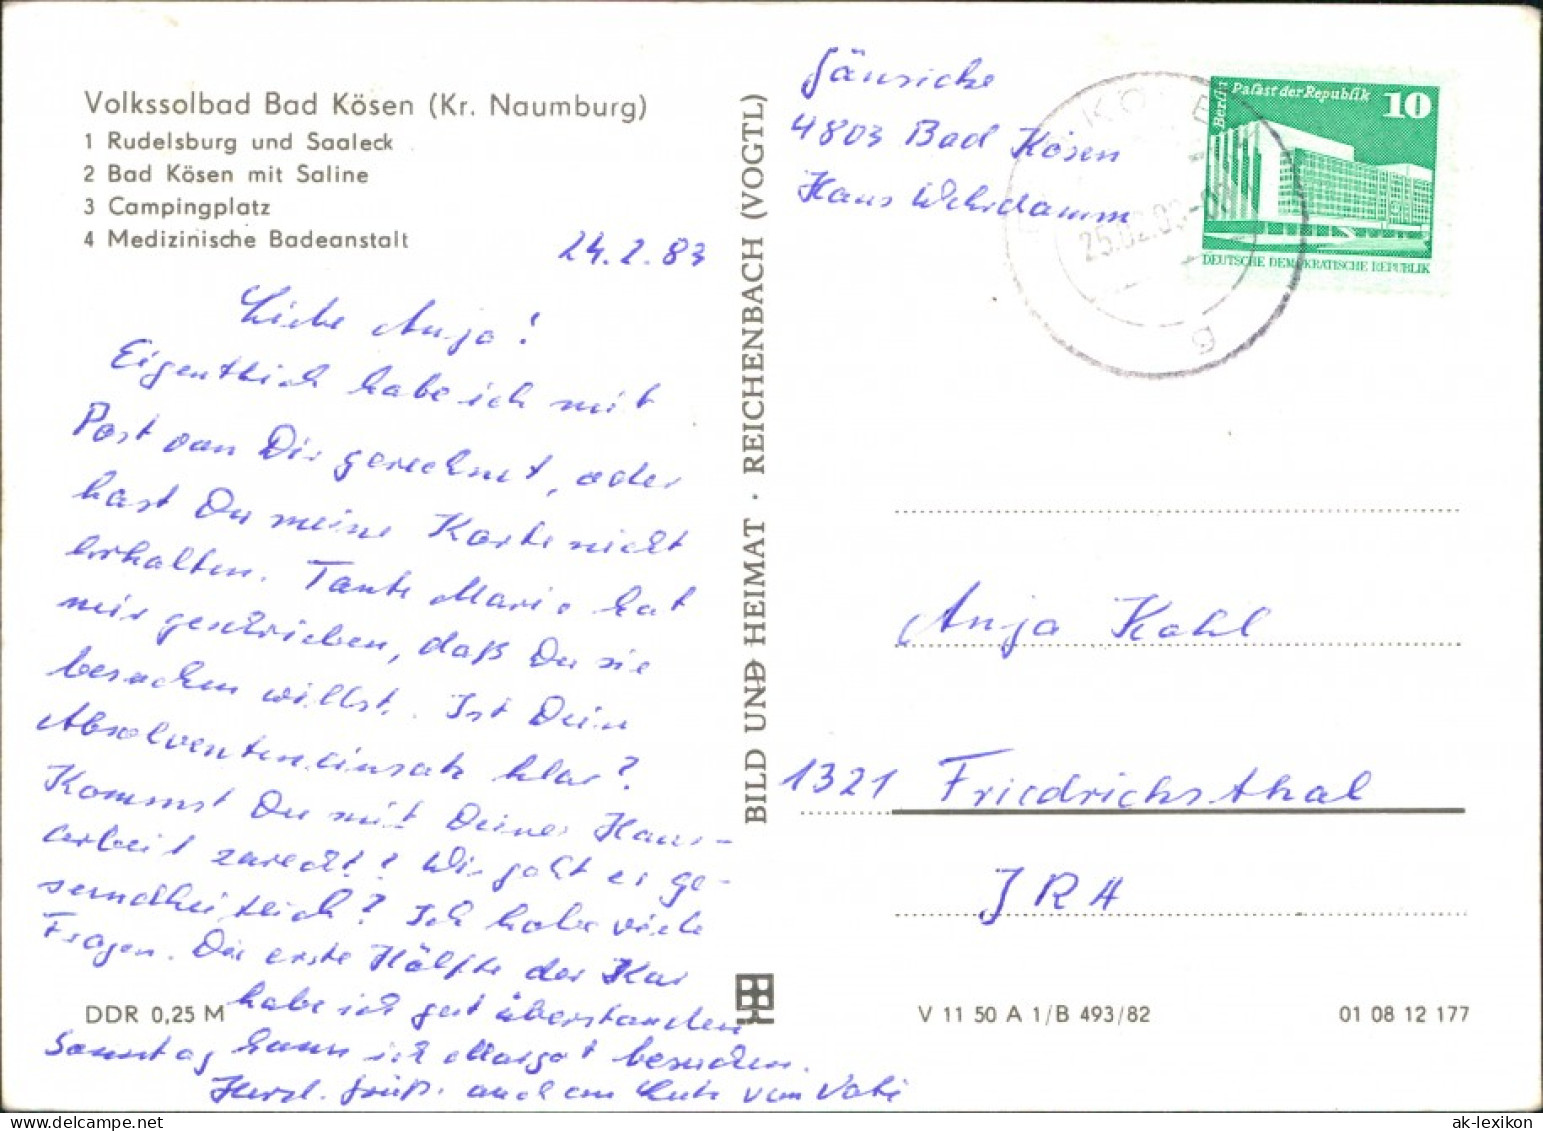 Volkssolbad Bad Kösen (Kr. Naumburg)
1 Rudelsburg und Saaleck
2 Bad Kösen mit Saline
3 Campingplatz
4 Medizinische Badeanstalt
24.2.83
Liebe Anja!
Eigentlich habe ich mit
Post von Dir gerechnet, oder
hast Du meine Karte nicht
erhalten. Tante Marie hat
mir geschrieben, daß Du sie
besuchen willst. Ist Dein
Absolventeneinsatz klar?
Kommst Du mit Deiner Haus-
arbeit zurecht? Wie geht es ge-
sundheitlich? Ich habe viele
Fragen. Die erste Hälfte der Kur
habe ich gut überstanden
Sonntag kann ich Margot besuchen.
Herzl. Grüße auch an Lutz vom Vati
DDR 0,25 M
BILD UND HEIMAT · REICHENBACH (VOGTL)
Jänricke
4803 Bad Kösen
Haus Wehrdamm
Berlin
Palast der Republik
10
DEUTSCHE DEMOKRATISCHE REPUBLIK
25.02.83
g
Anja Kohl
1321 Friedrichsthal
JRA
V 11 50 A 1/B 493/82
01 08 12 177
ak-lexikon